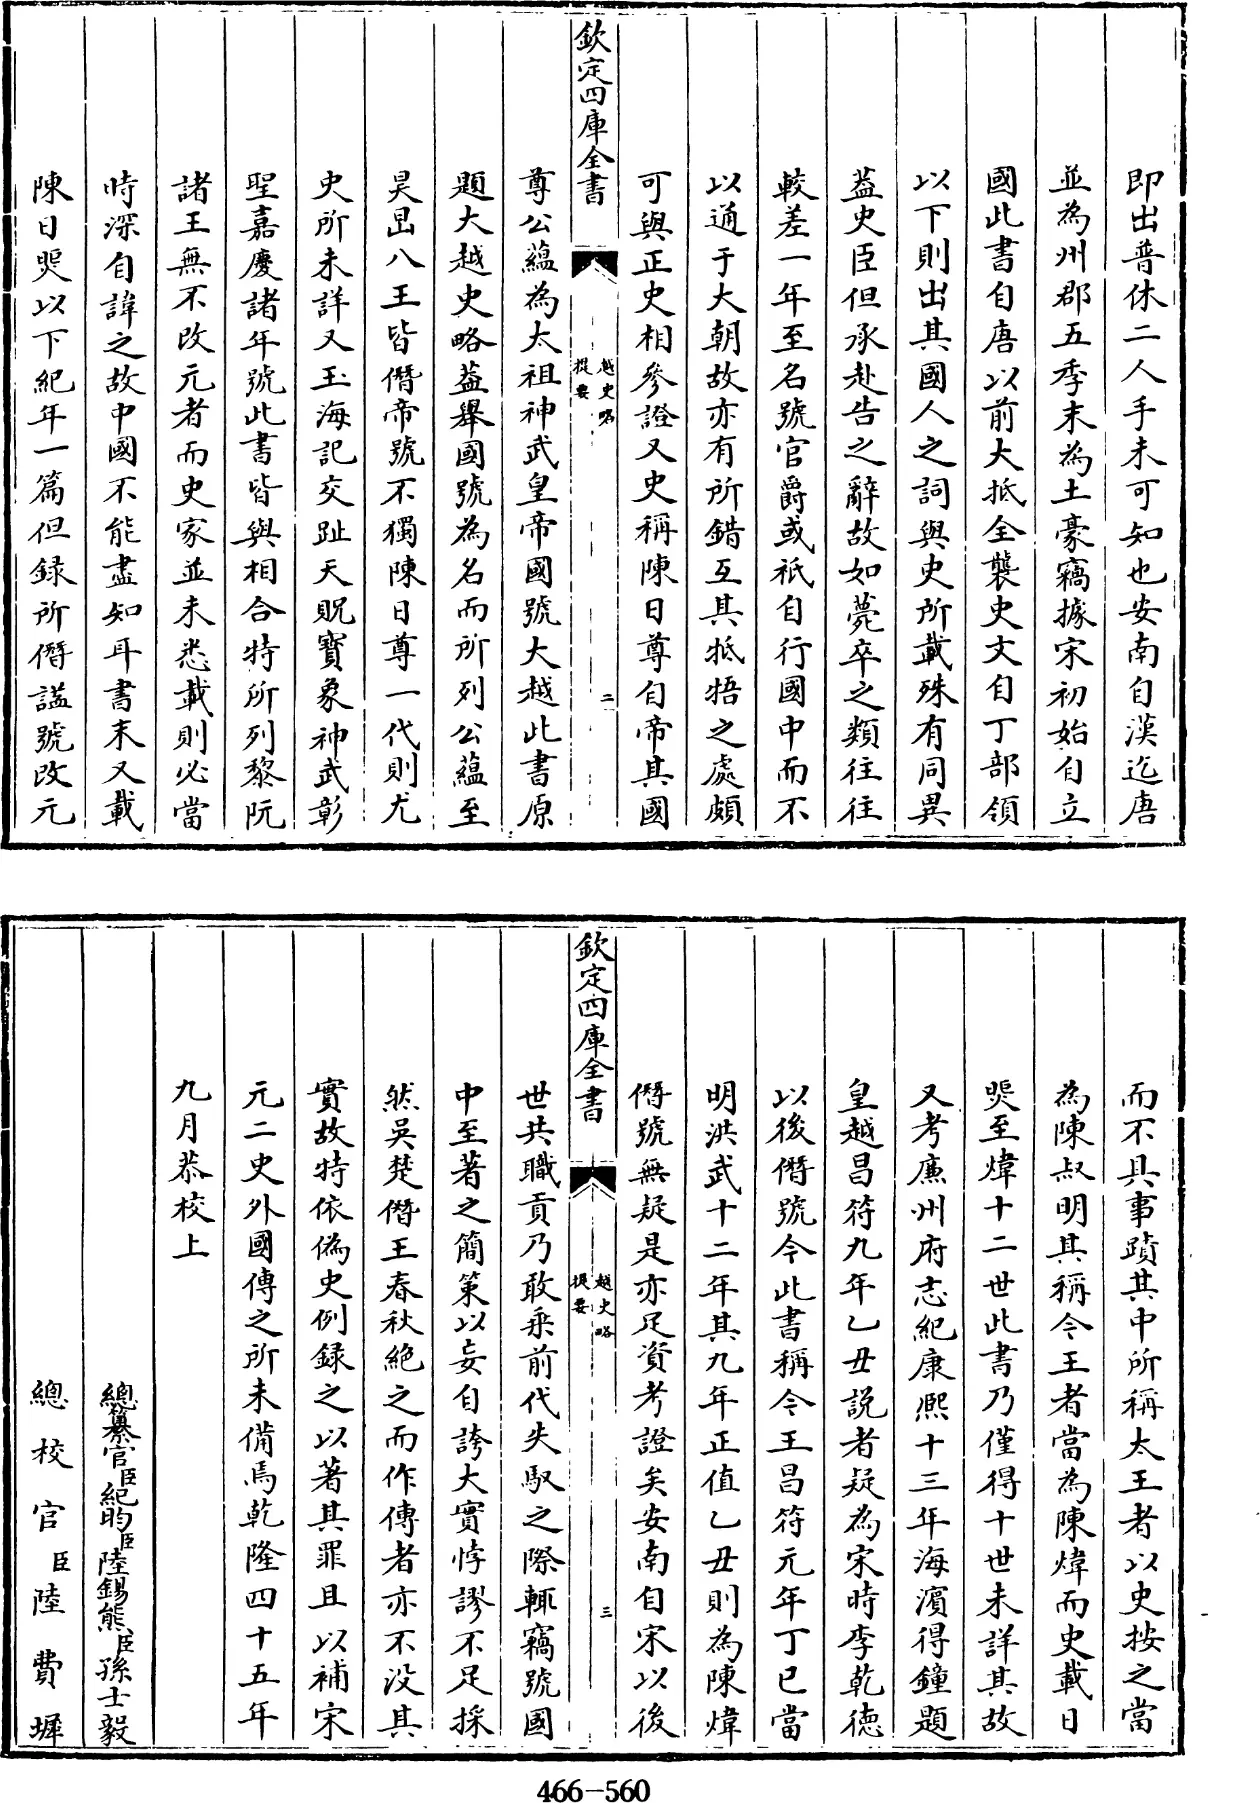 即出普休二人手未可知也安南自漢迄唐
並為州郡五季末為土豪竊據宋初始自立
國此書自唐以前大抵全襲史文自丁部領
以下則出其國人之詞與史所載殊有同異
葢史臣但承赴告之辭故如薨卒之類往往
較差一年至名號官爵或祇自行國中而不
以通于大朝故亦有所錯互其牴牾之處頗
可與正史相參證又史稱陳日尊自帝其國
欽定四庫全書
越史略
提要
二
尊公蘊為太祖神武皇帝國號大越此書原
題大越史略葢舉國號為名而所列公蘊至
昊旵八王皆僭帝號不獨陳日尊一代則尤
史所未詳又玉海記交趾天貺寶象神武彰
聖嘉慶諸年號此書皆與相合特所列黎阮
諸王無不改元者而史家並未悉載則必當
時深自諱之故中國不能盡知耳書末又載
陳日煚以下紀年一篇但錄所僭諡號改元
而不具事蹟其中所稱太王者以史按之當
為陳叔明其稱今王者當為陳煒而史載日
煚至煒十二世此書乃僅得十世未詳其故
又考廉州府志紀康熙十三年海濵得鐘題
皇越昌符九年乙丑説者疑為宋時李乾德
以後僭號今此書稱今王昌符元年丁巳當
明洪武十二年其九年正值乙丑則為陳煒
僭號無疑是亦足資考證矣安南自宋以後
欽定四庫全書
越史略
提要
三
世共職貢乃敢乘前代失馭之際輒竊號國
中至著之簡策以妄自誇大實悖謬不足採
然吳楚僭王春秋絶之而作傳者亦不没其
實故特依偽史例録之以著其罪且以補宋
元二史外國傳之所未備焉乾隆四十五年
九月恭校上
總纂官臣紀昀臣陸錫熊臣孫士毅
總校官臣陸費墀
466-560